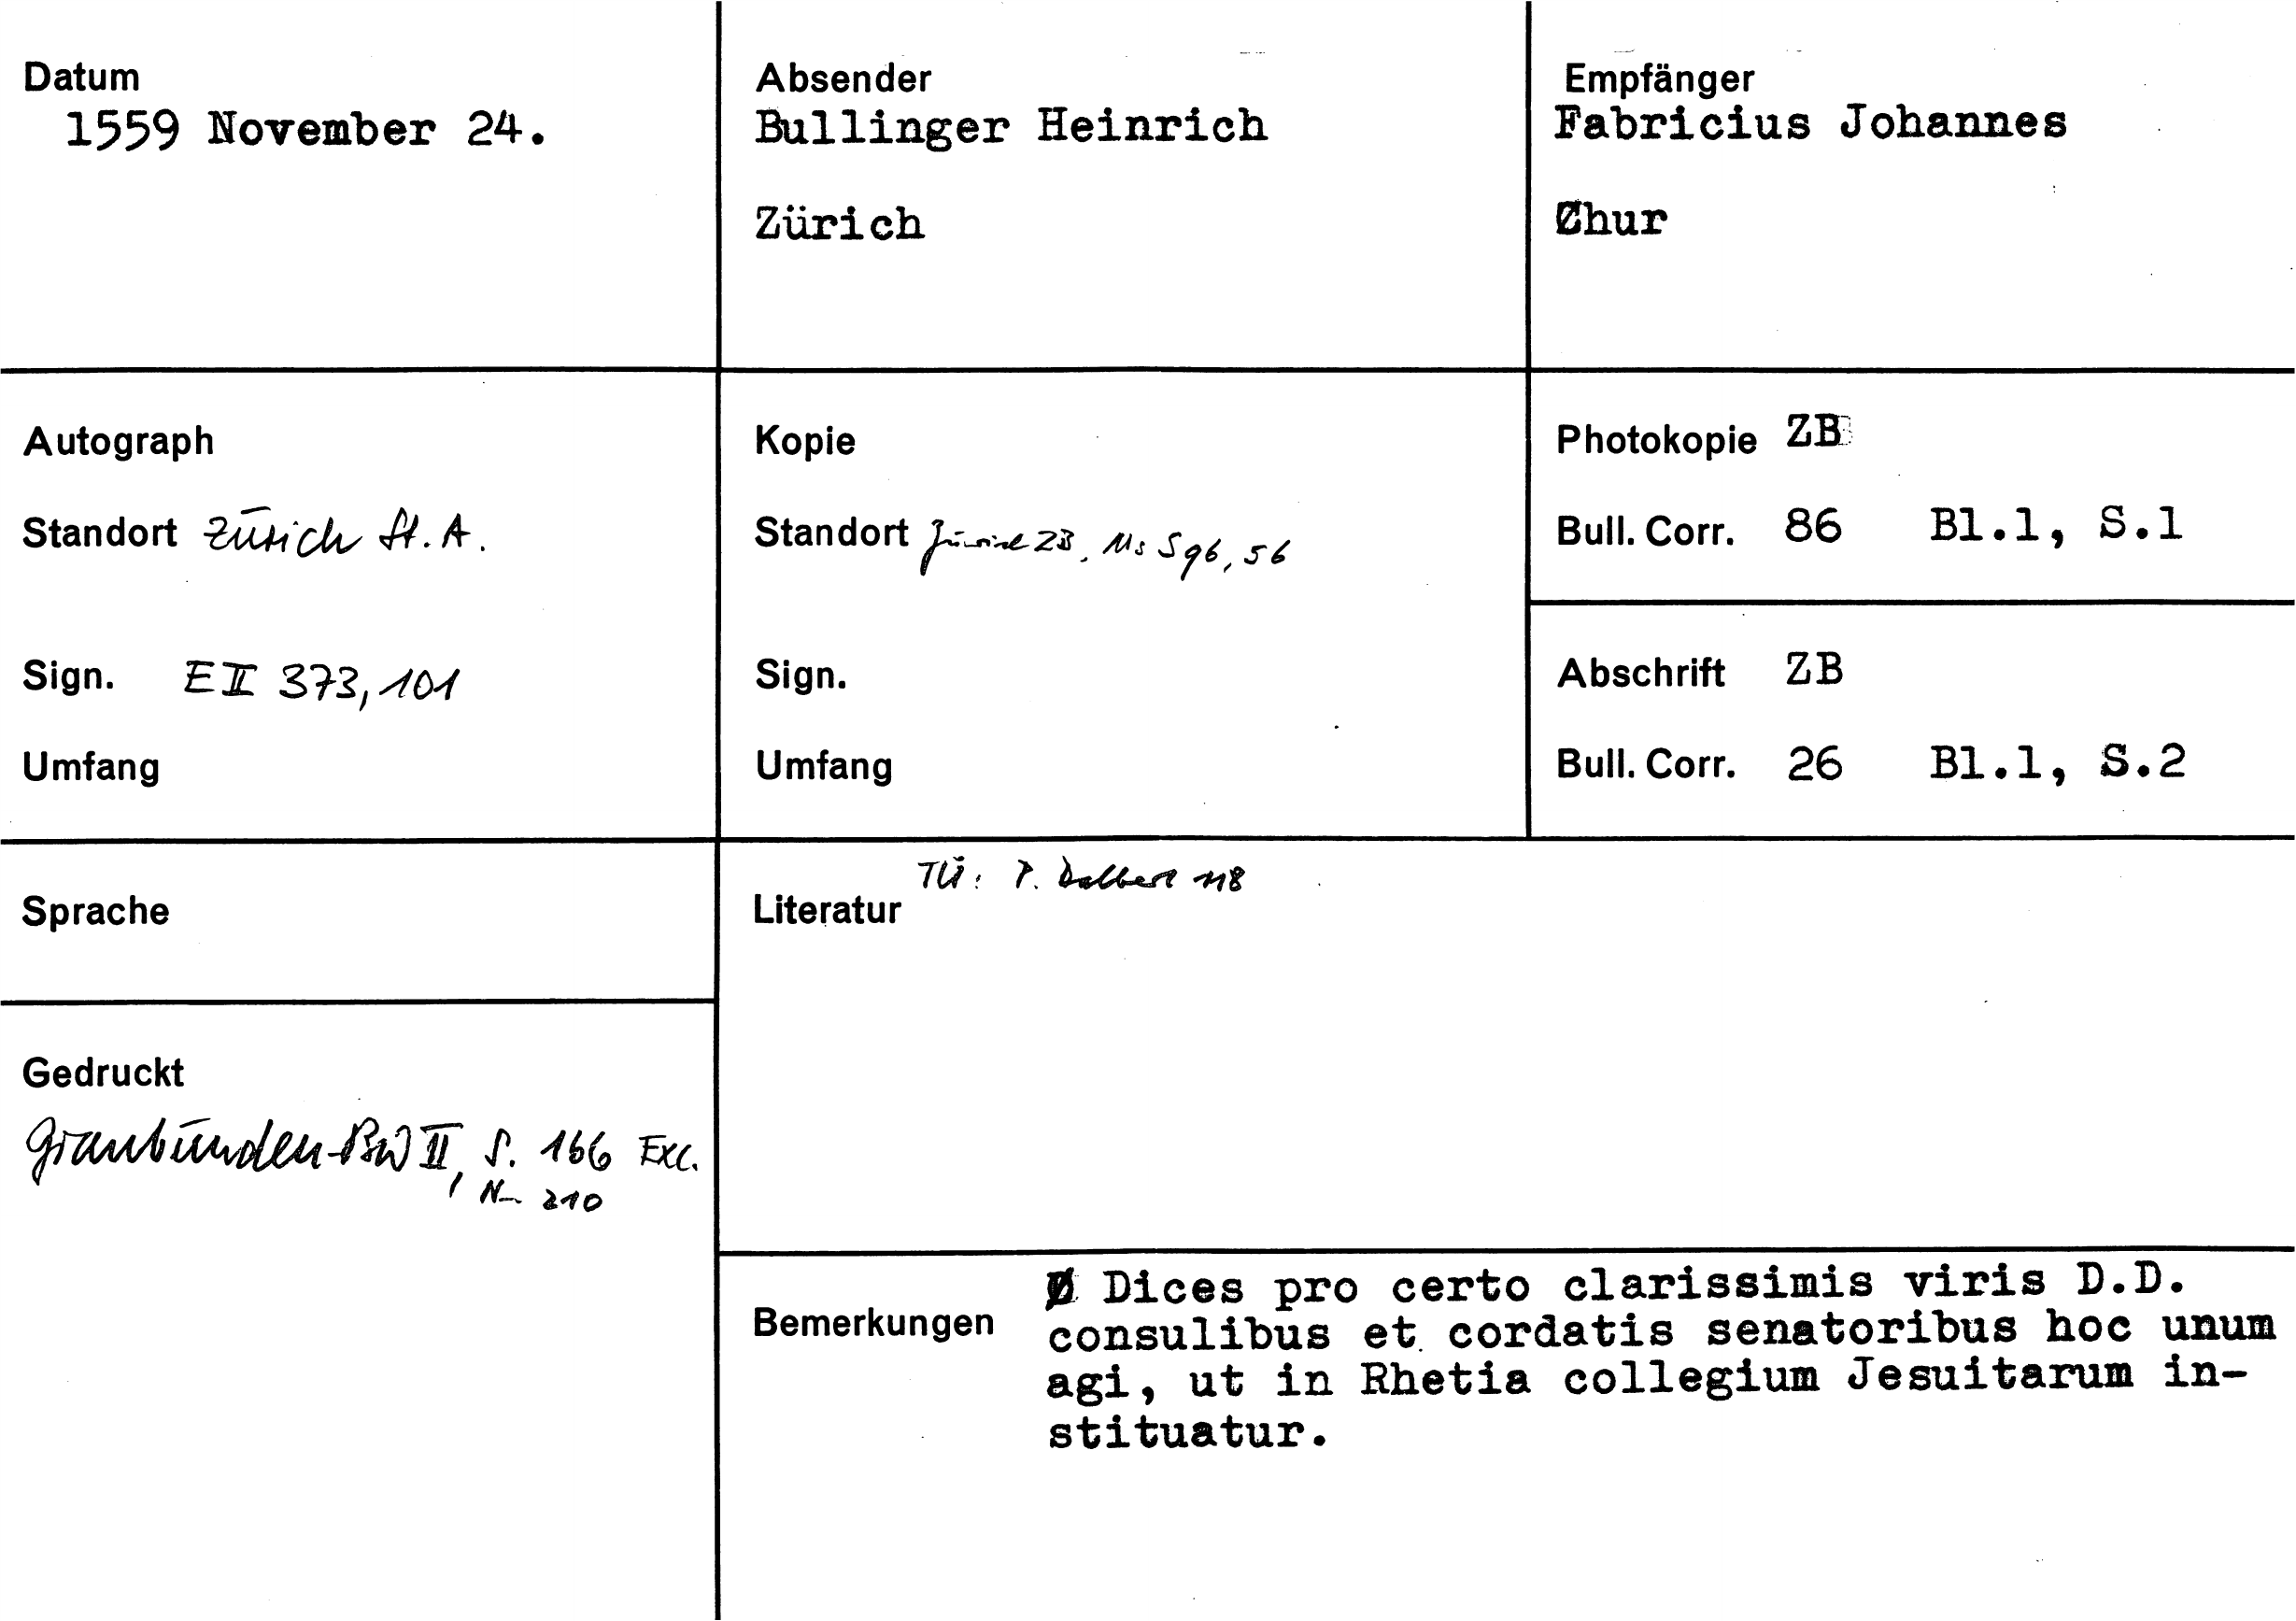 Datum
1559 November 24.
Absender
Bullinger Heinrich
Zürich
Empfänger
Fabricius Johannes
Chur
Autograph
Standort Zürich St.A.
Sign. E II 373, 101
Umfang
Kopie
Standort Zürich ZB, Ms S 96, 56
Sign.
Umfang
Photokopie ZB
Bull. Corr. 86 Bl.1, S.1
Abschrift ZB
Bull. Corr. 26 Bl.1, S.2
Sprache
Gedruckt
Graubünden-BW II, S. 166 Exc.
Nr. 210
TÜ: P. Dalbert 118
Literatur
Bemerkungen
Dices pro certo clarissimis viris D.D.
consulibus et cordatis senatoribus hoc unum
agi, ut in Rhetia collegium Jesuitarum in-
stituatur.